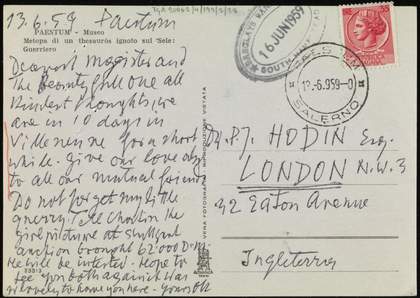 13.6.59 Paestum
TGA 20062/4/199/5/26
PAESTUM - Museo
Metopa di un thesaurós ignoto sul Sele:
Guerriero
BARCLAYS BANK
16 JUN 1959
PAESTUM
13.-6.959-0
SALERNO
Dearest Magister and
The Beauty full one all
Kindest thoughts we
are in 10 days in
Villeneuve for a short
while. give our love also
to all our mutual friend
Do not forget my little
query, Tell Charlie the
girl picture at Stuttgart
auction brought 62'000 D.M.
He will be interested. Hope to
see you both again it was
so lovely to have you here. Yours OK
VERA FOTOGRAFIA RIPRODUZIONE VIETATA
23313
Dr. P.J. HODIN Esq.
LONDON N.W.3
32 Eaton Avenue
Ingleterra